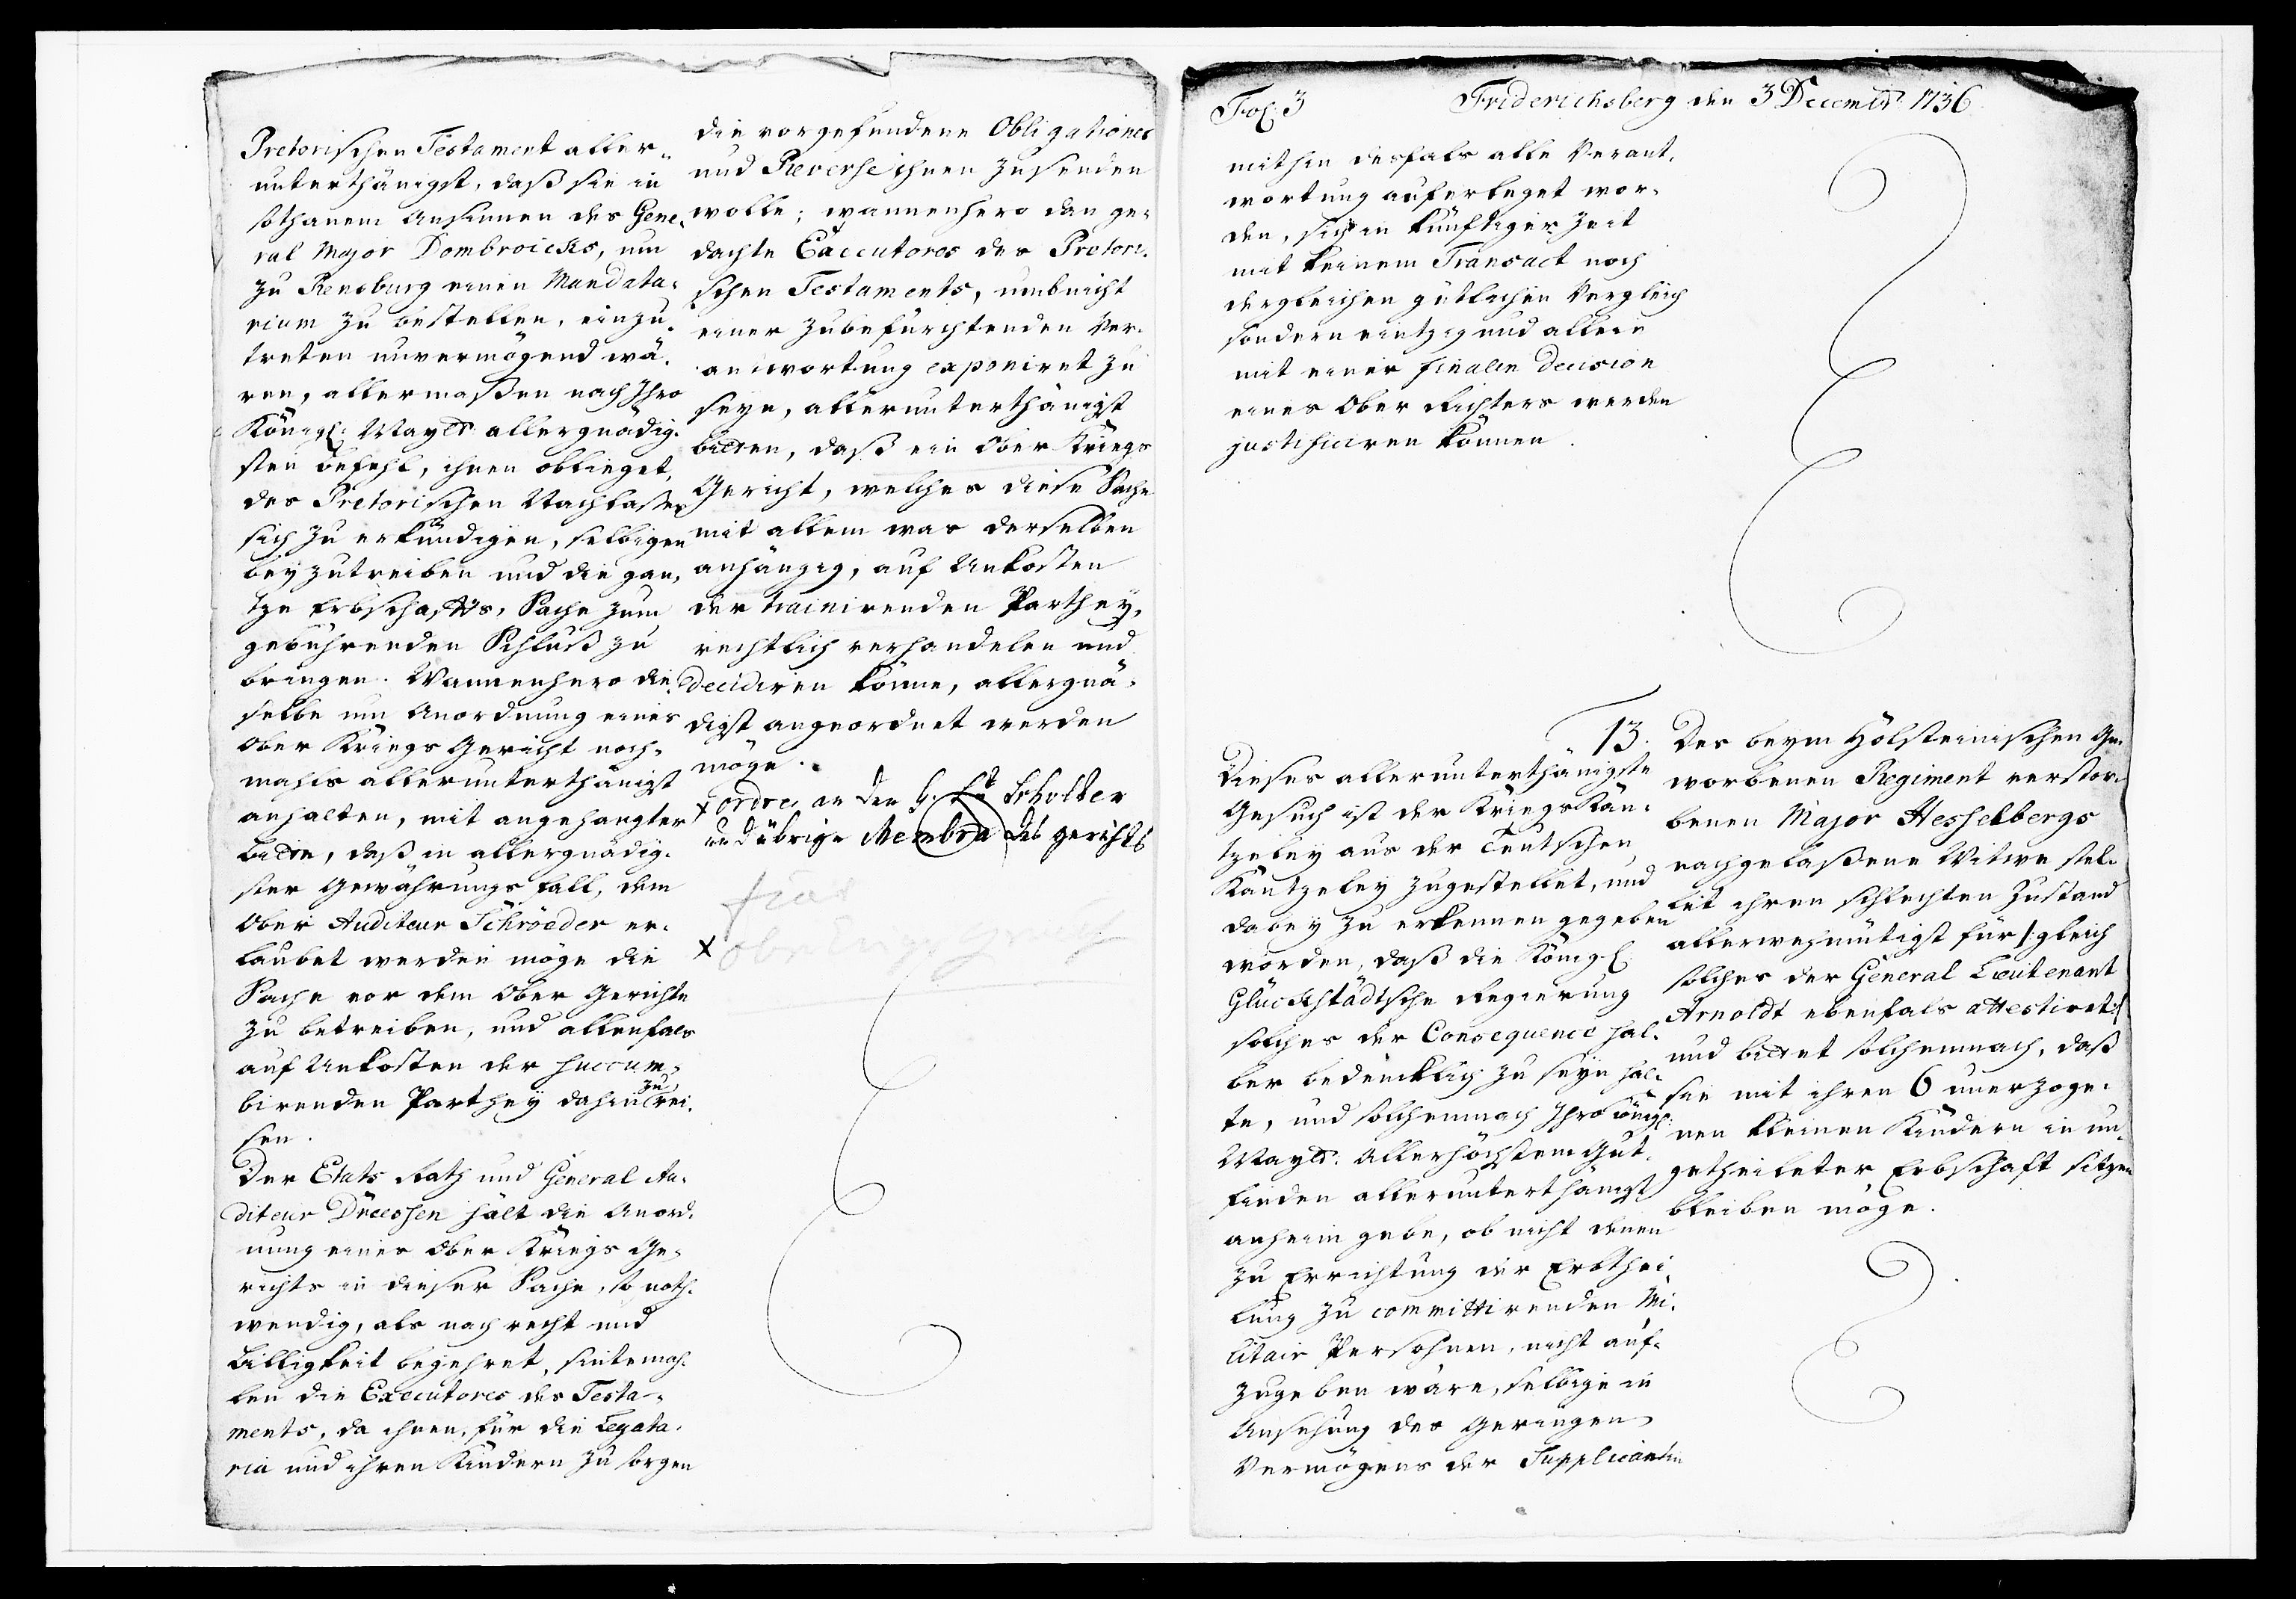 Pretorischen Testament aller-
unterthänigst, daß sie in
sothanem Ansinnen des Gene-
ral Major Dombroicks, um
zu Rensburg einen Mandata-
rium zu bestellen, einzu-
treten unvermögend wä-
ren, allermaßen nach Ihro
Königl: Maytt. allergnädig-
sten Befehl, ihnen oblieget,
des Pretorischen Nachlaßes
sich zu erkundigen, selbigen
beyzutreiben und die gan-
tze Erbschafts-Sache zum
gebührenden Schluß zu
bringen. Wannenhero die-
selbe um Anordnung eines
Ober Kriegs Gericht noch-
mahls allerunterthänigst
anhalten, mit angehangter
Bitte, daß in allergnädig-
ster Gewährungs Fall, dem
Ober Auditeur Schröeder er-
laubet werden möge die
Sache vor dem Ober Gerichte
zu betreiben, und allenfals
auf Unkosten der succum-
birenden Parthey dahin zu rei-
sen.
Der Etats Rath und General Au-
diteur Dreessen hält die Anord-
nung eines Ober Kriegs Ge-
richts in dieser Sache, so noth-
wendig, als nach recht und
Billigkeit begehret, sintemah-
len die Executores des Testa-
ments, da ihnen, für die Legata-
ria und ihren Kindern zu sorgen
die vorgefundene Obligationes
und Reverse ihnen zusenden
wolle; wannenhero den ge-
dachte Executores des Pretori-
schen Testaments, umb nicht
einer zubefürchtenden Ver-
antwortung exponiret zu
seyn, allerunterthänigst
bitten, daß ein Ober Kriegs
Gericht, welches diese Sache
mit allem was derselben
anhängig, auf Unkosten
der trainirenden Parthey,
rechtlich verhandelen und
decidiren könne, allergnä-
digst angeordnet werden
möge.
x ordre an den G. Lt Scholten
und übrige Membra des gerichts
fiat
x
Fol: 3
Friderichsberg den 3 Decembr. 1736
mithin desfals alle Verant-
wortung auferleget wor-
den, sich in künftiger Zeit
mit keinem Transact noch
dergleichen gütlichen Vergleich
sondern eintzig und allein
mit einer finalen Decision
eines Ober Richters werden
justificiren können.
13.
Dieses allerunterthänigste
Gesuch ist der Kriegs Kän-
tzeley aus der Teutschen
Käntzeley zugestellet, und
dabey zu erkennen gegeben
worden, daß die Königl.
Glückstädtsche Regierung
solches der Consequence hal-
ber bedencklich zu seyn hal-
te, und solchemnach Ihro Königl:
Maytt. Allerhöchstem Gut-
finden allerunterthänigst
anheim gebe, ob nicht denen
zu Errichtung der Erbthei-
lung zu committirenden Mi-
litair Persohnen, nicht auf-
zugeben wäre, selbige in
Ansehung des Geringen
Vermögens der Supplicantin
Des beym Holsteinischen Ge-
worbenen Regiment verstor-
benen Major Hesselbergs
nachgelaßene Witwe stel-
let ihren schlechten Zustand
allerwehmütigst für /: gleich
solches der General Lieutenant
Arnoldt ebenfals attestiret :/
und bittet solchemnach, daß
sie mit ihren 6 unerzoge-
nen kleinen Kindern in un-
getheileter Erbschaft sitzen
bleiben möge.